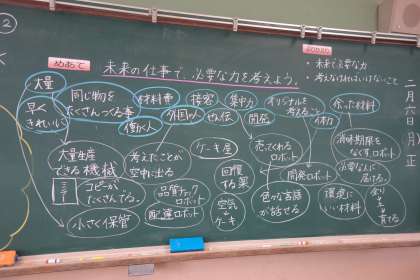 ②
めあて
未来の仕事で、必要な力を考えよう。
まとめ
・未来で必要な力
・考えなければいけないこと
一月六日(月)
正
大量
早く
きれいに
同じ物を
たくさんつくる事
材料費
働く人
接客
外国人
せん伝
集中力
開発
オリジナルを
考えること
体力
余った材料
大量生産
できる機械
考えたことが
空中に出る
ケーキ屋
売ってくれる
ロボット
消味期限を
なくすロボット
コピーが
たくさんでる。
品質チェック
ロボット
配達ロボット
回復
する薬
開発ロボット
必要な人に
届ける。
小さく保管
空気
↓
ケーキ
色々な言語
が話せる
環境に
いい材料
余り
育てる